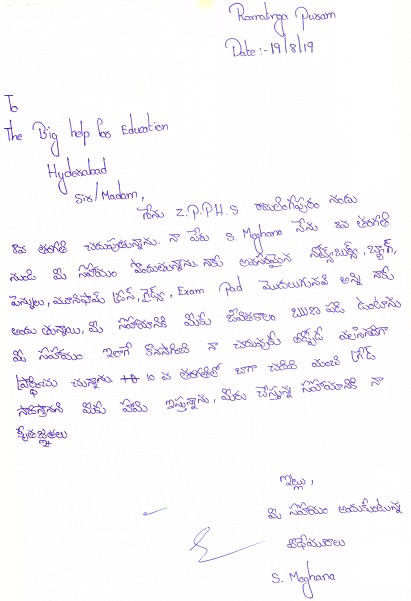 Ramalinga Puram
Date:-19/8/19
To
The Big help for Education
Hyderabad
Sir/Madam,
నేను Z.P.P.H.S రామలింగపురం నందు
8వ తరగతి చదువుతున్నాను. నా పేరు S. Meghana నేను 8వ తరగతి
నుండి మీ సహాయం పొందుతున్నాను. నాకు అవసరమైన నోట్స్‌బుక్స్, బ్యాగ్,
పెన్నులు, యూనిఫామ్ డ్రస్, గైడ్స్, Exam Pad మొదలుగునవి అన్ని నాకు
అందుతున్నాయి, మీ సహాయానికి మీకు జీవితకాలం ఋణపడి ఉంటాను
మీ సహాయం ఇలాగే కొనసాగించి నా చదువుకు తోడ్పడ వలసినదిగా
ప్రార్థించు చున్నాను 10 వ తరగతిలో బాగా చదివి మంచి గ్రేడ్
సాధిస్తానని మీకు హామి ఇస్తున్నాను, మీరు చేస్తున్న సహాయానికి నా
కృతజ్ఞతలు
ఇట్లు,
మీ సహాయం అందుకుంటున్న
S. Meghana